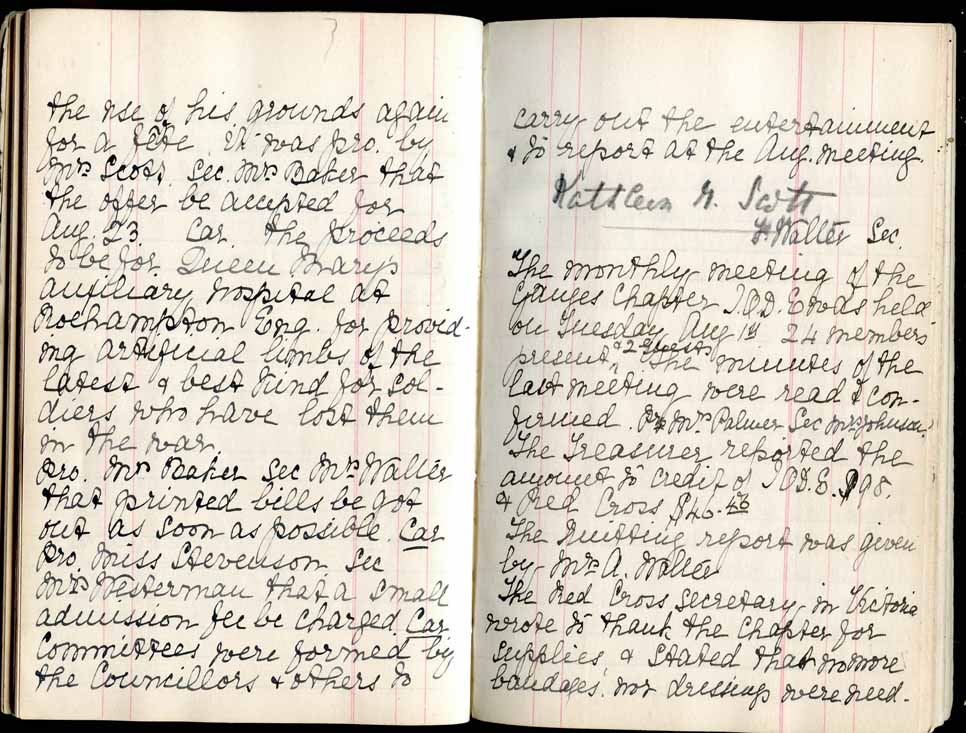 the use of his grounds again
for a fête. It was pro. by
Mrs Scott. Sec. Mrs Baker that
the offer be accepted for
Aug. 23. Car. The proceeds
to be for Queen Mary's
auxiliary hospital at
Roehampton Eng. for provid-
ing artificial limbs of the
latest & best kind for sol-
diers who have lost them
in the war.
Pro. Mrs Baker Sec Mrs Walter
that printed bills be got
out as soon as possible. Car
Pro. Miss Stevenson. Sec
Mrs Westerman that a small
admission fee be charged. Car
Committees were formed by
the Councillors & others to
carry out the entertainment
& to report at the Aug. meeting.
Kathleen G. Scott
F. Walter Sec.
The monthly meeting of the
Ganges Chapter I.O.D.E was held
on Tuesday Aug 1st 24 members
present & 2 guests The minutes of the
last meeting were read & con-
firmed. Pro Mrs Palmer Sec Mrs Johnson.
The Treasurer reported the
amount to credit of I.O.D.E. $98.
& Red Cross $46.46
The Knitting report was given
by Mrs A. Walter
The Red Cross Secretary in Victoria
wrote to thank the Chapter for
supplies, & stated that no more
bandages, nor dressings were need-